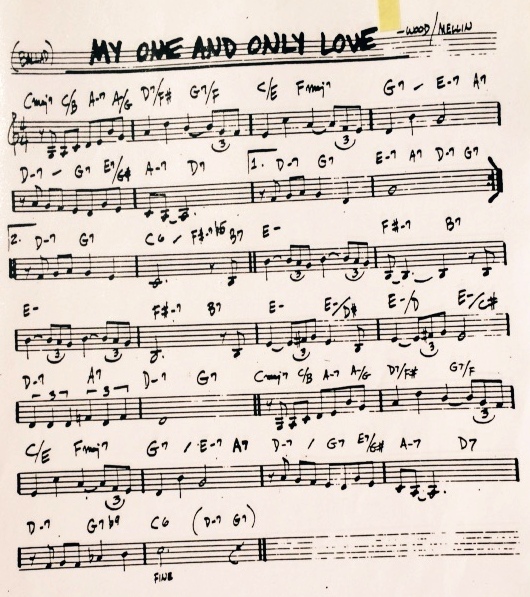 (BALLAD) MY ONE AND ONLY LOVE -WOOD/MELLIN
Cmaj7 C/B A-7 A/G D7/F# G7/F C/E Fmaj7 G7 - E-7 A7
4 4 3 3
D-7 - G7 E7/G# A-7 D7 1. D-7 G7 E-7 A7 D-7 G7
2. D-7 G7 C6 / F#-7b5 B7 E- F#-7 B7
3 3
E- F#-7 B7 E- E-/D# E-/D E-/C#
3 3 3 3
D-7 A7 D-7 G7 Cmaj7 C/B A-7 A/G D7/F# G7/F
3 3 3
C/E Fmaj7 G7 / E-7 A7 D-7 / G7 E7/G# A-7 D7
3
D-7 G7b9 C6 (D-7 G7)
FINE